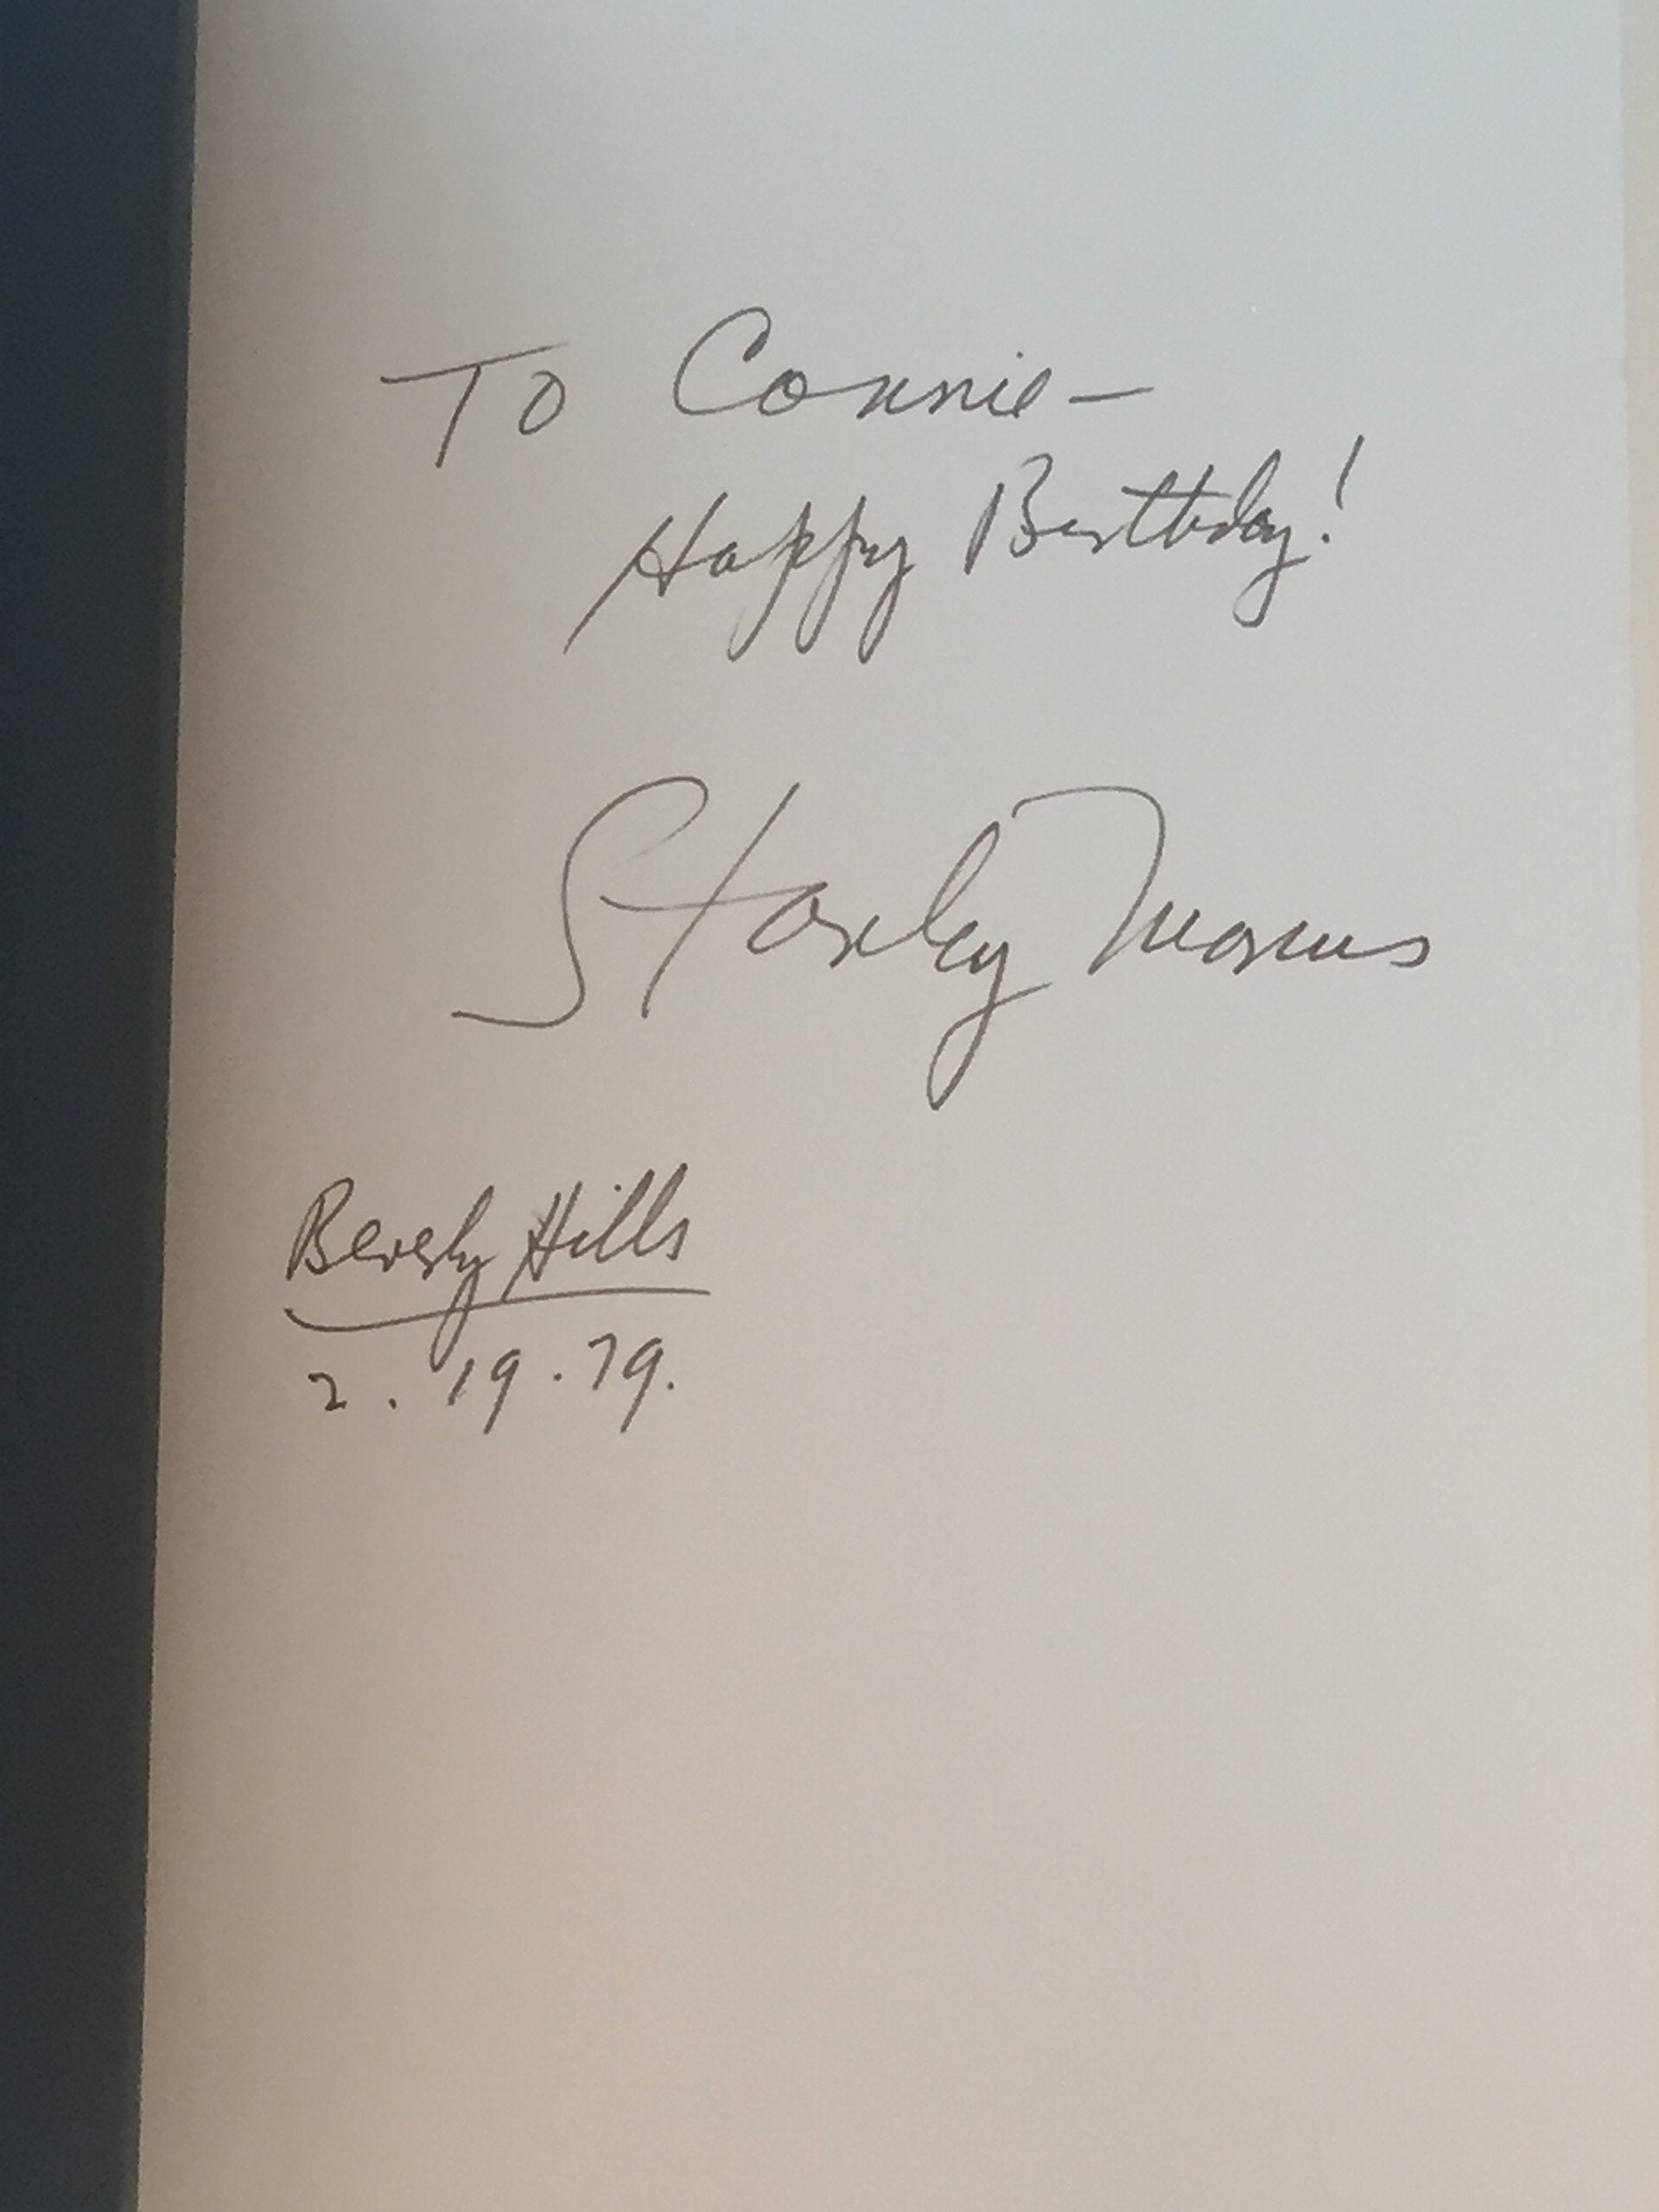 To Connie —
Happy Birthday!
Stanley Marcus
Beverly Hills
2.19.79.